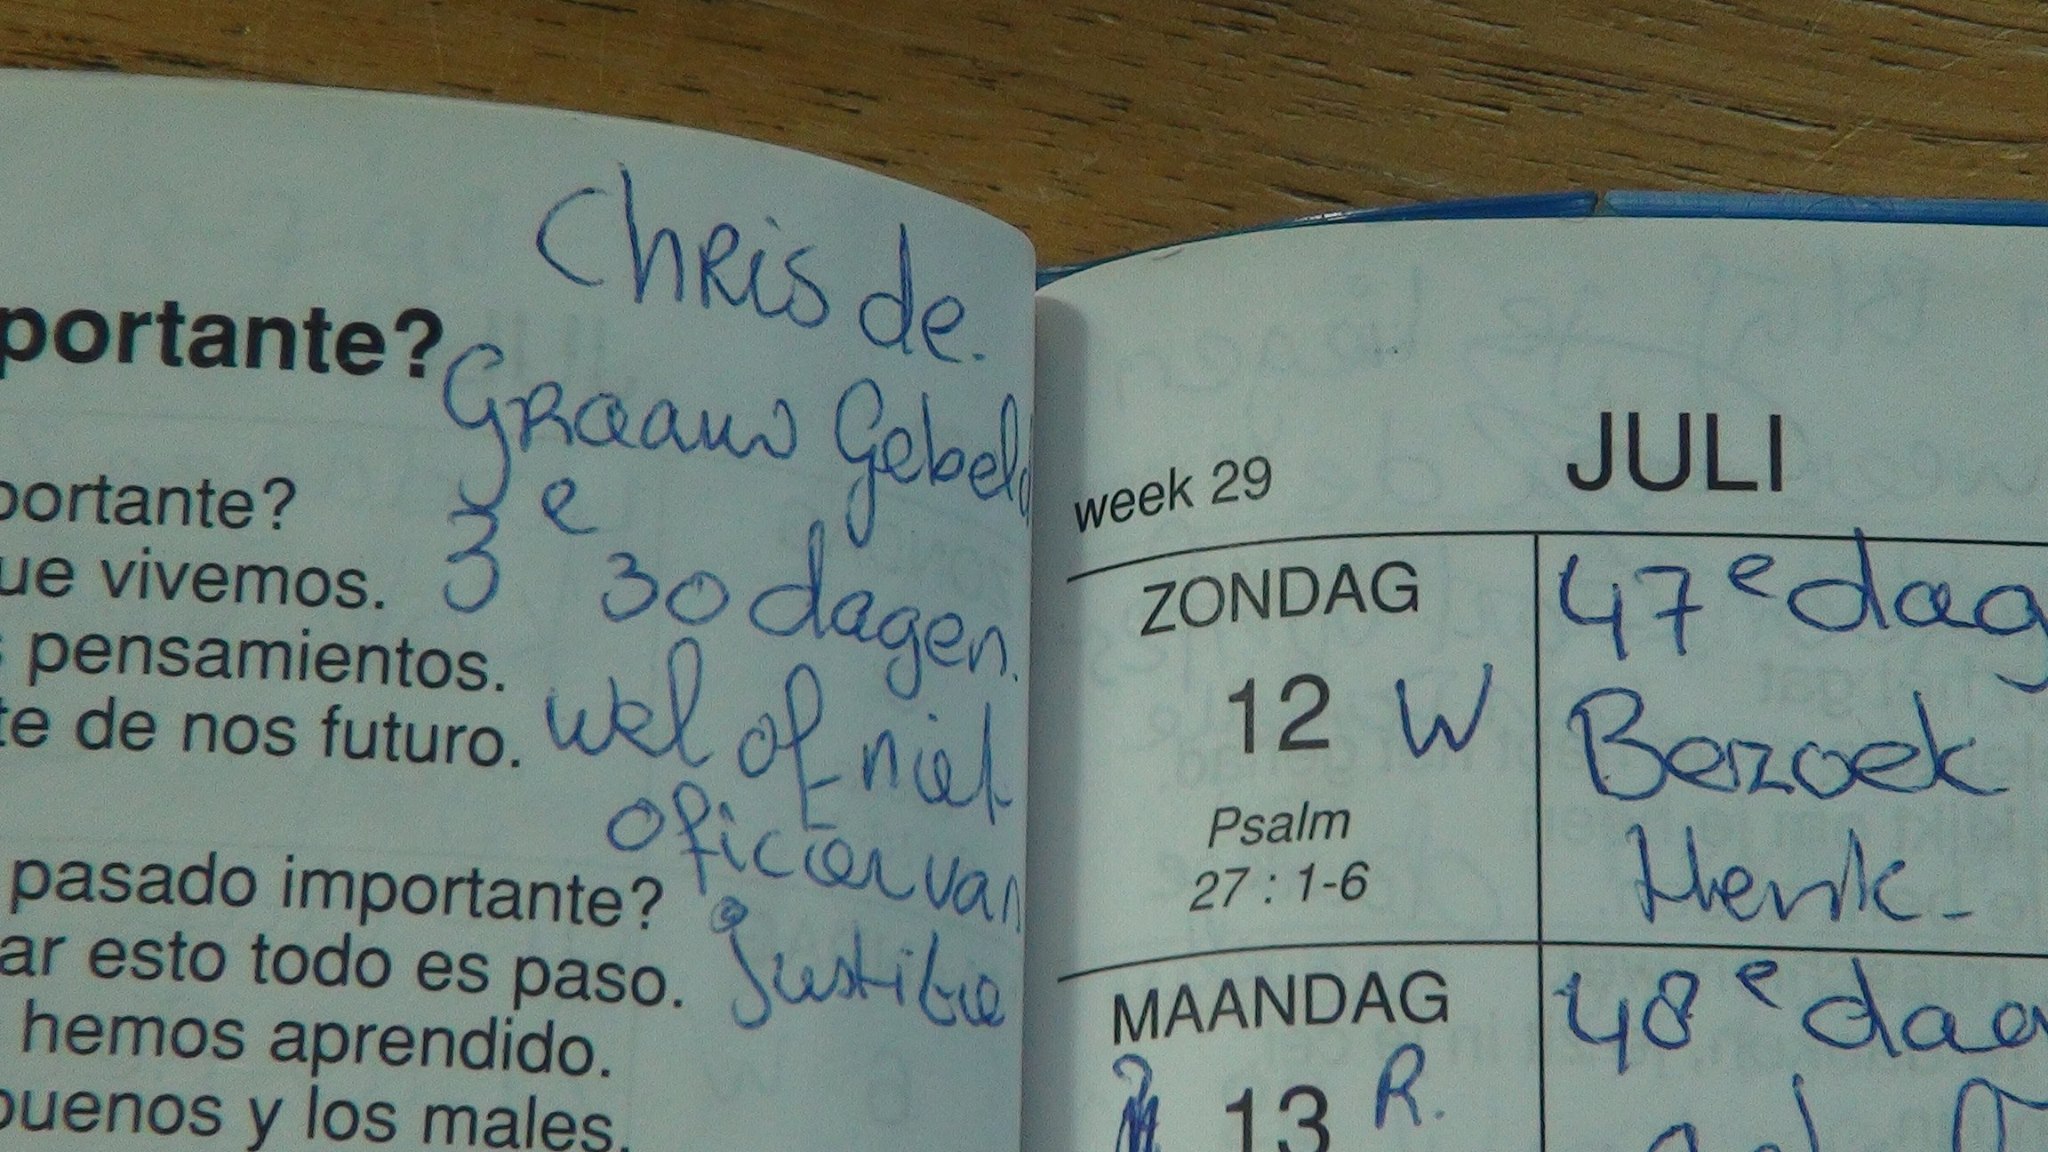 Chris de.
Graauw Gebeld
3e 30 dagen.
wel of niet
oficier van
Justitie
portante?
portante?
ue vivemos.
s pensamientos.
te de nos futuro.
pasado importante?
ar esto todo es paso.
hemos aprendido.
buenos y los males.
week 29 JULI
ZONDAG 47e dag
12 W Bezoek
Psalm Henk-
27 : 1-6
MAANDAG 48e dag
13 R.